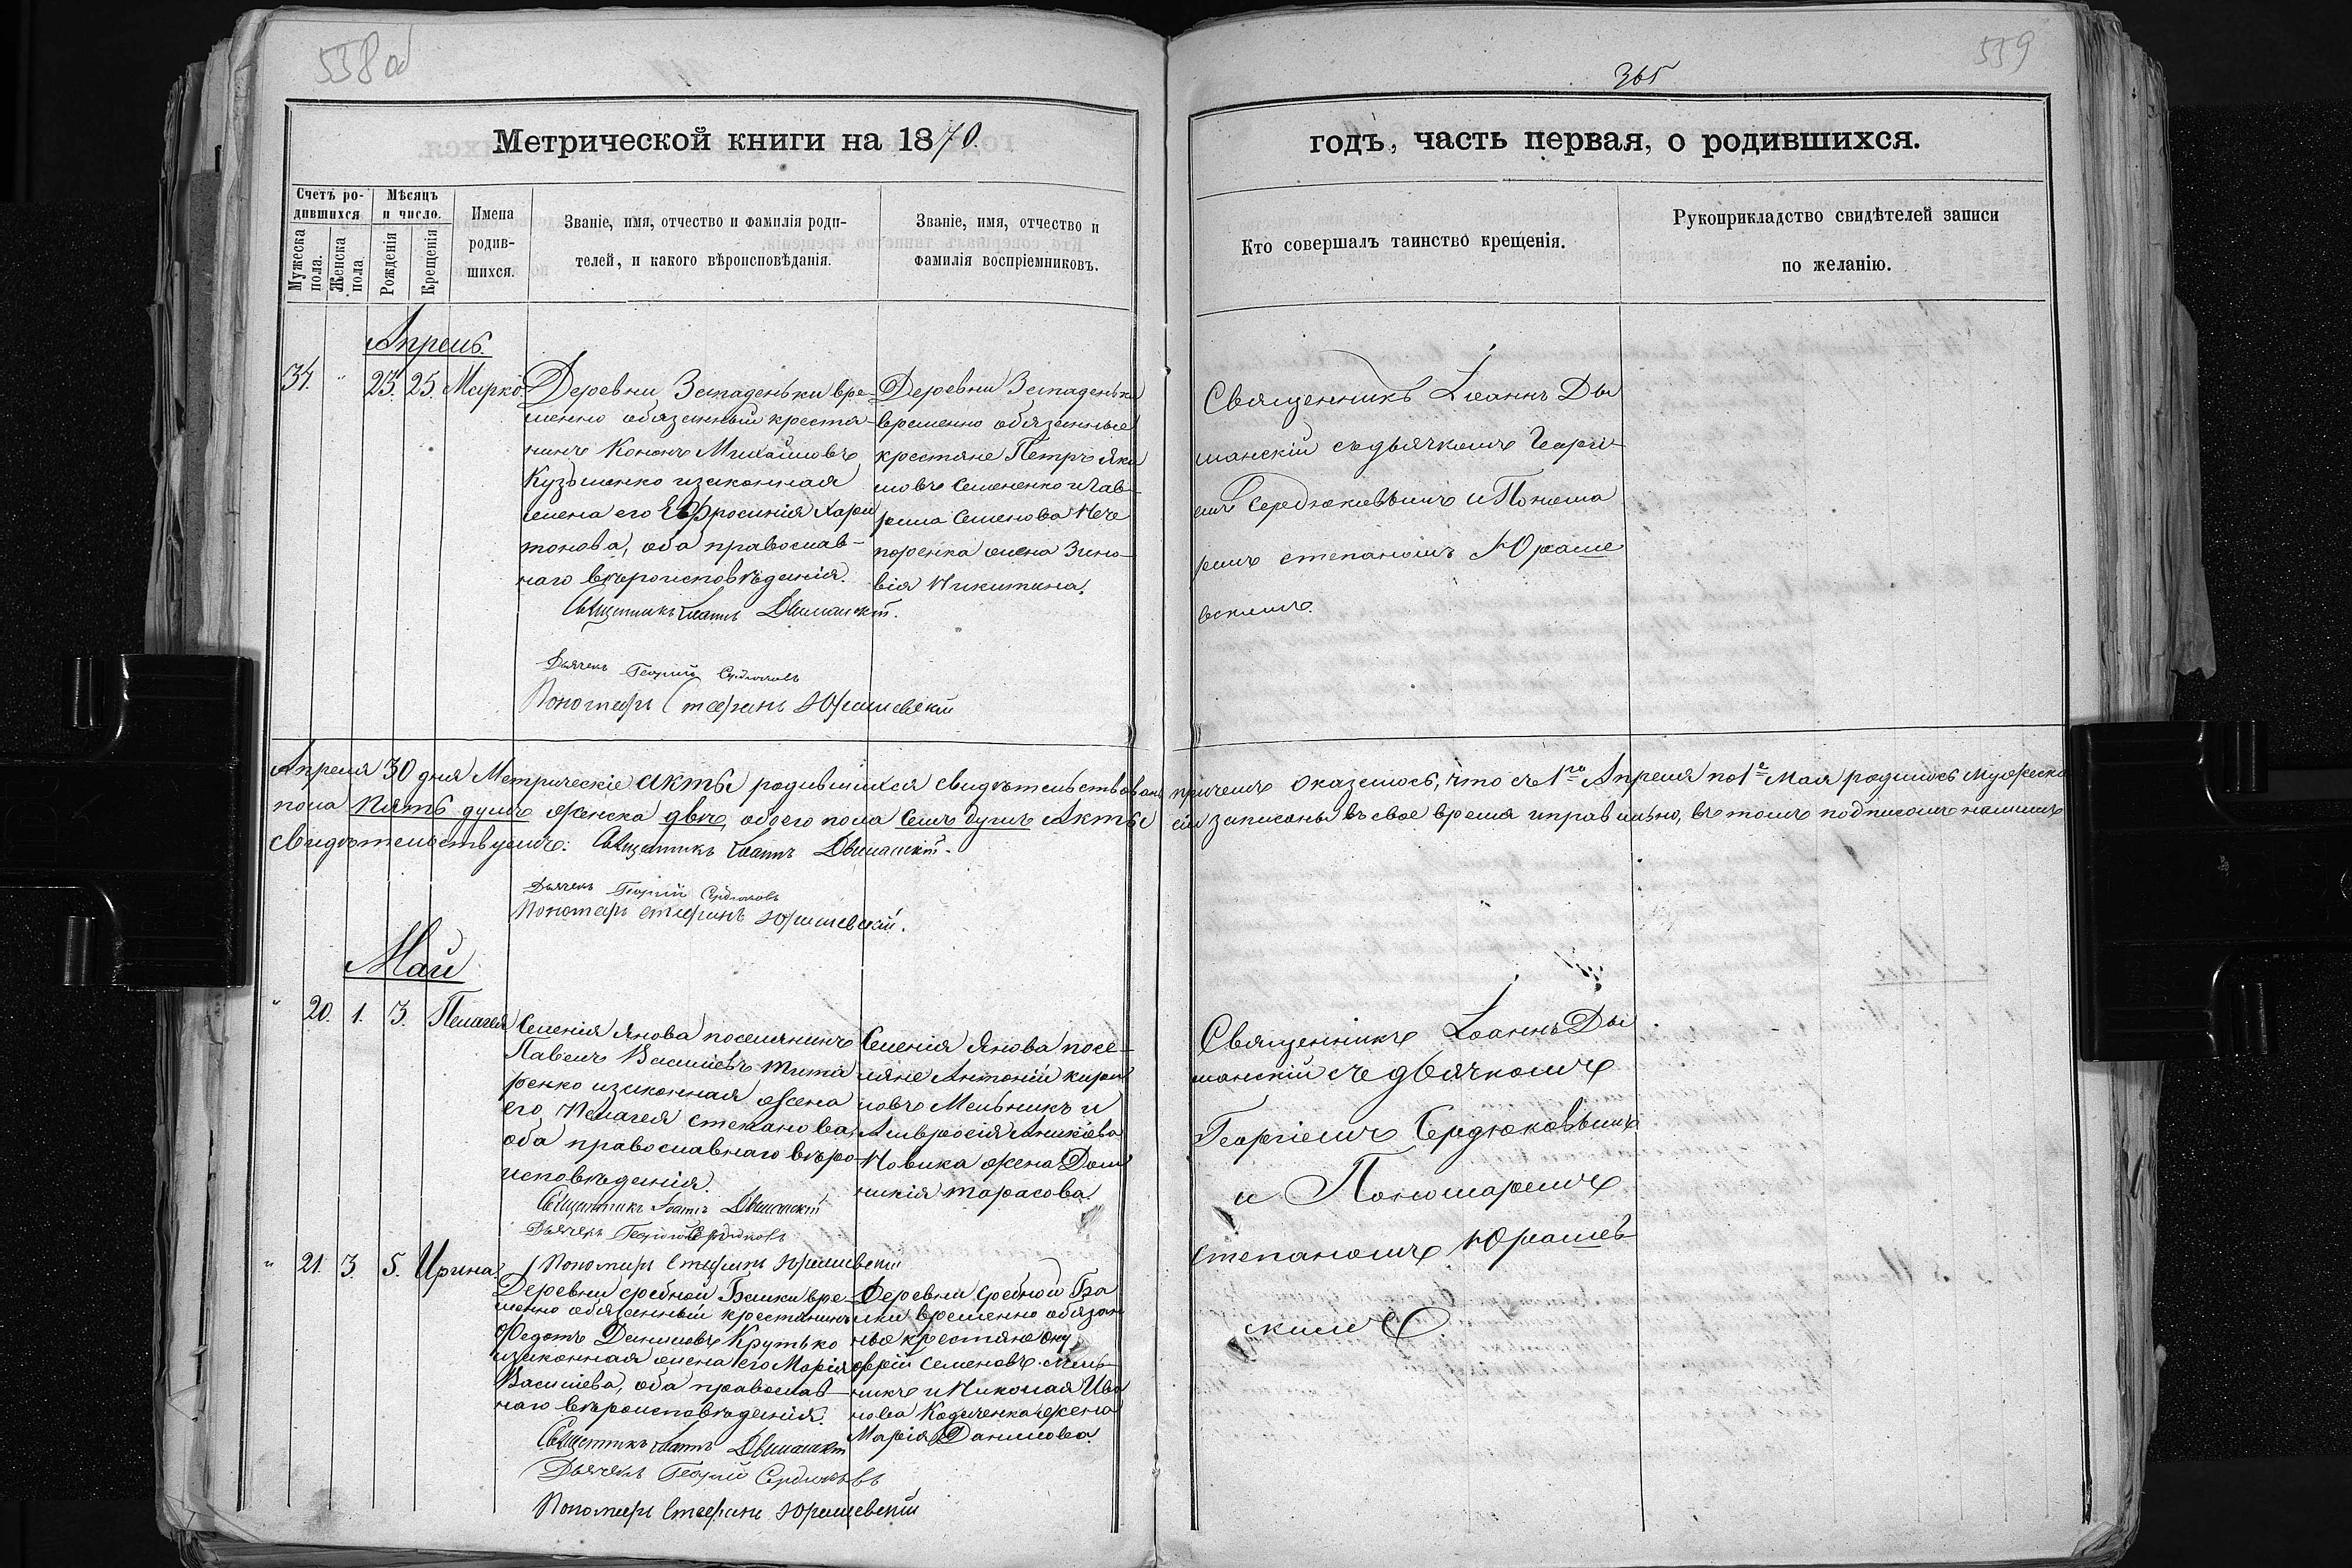 538 об
559
365
Метрической книги на 1870.
годъ, часть первая, о родившихся.
Счетъ ро-
дившихся
Мужеска
пола.
Женска
пола.
Мѣсяцъ
и число.
Рожденія
Крещенія
Имена
родив-
шихся.
Званіе, имя, отчество и фамилія роди-
телей, и какого вѣроисповѣданія.
Званіе, имя, отчество и
фамилія воспріемниковъ.
Кто совершалъ таинство крещенія.
Рукоприкладство свидѣтелей записи
по желанію.
Апрель.
34. " 23. 25. Марко.
Деревни Западеньки вре-
менно обязанный крестья-
нинъ Кононъ Михайловъ
Кузьменко изаконная
жена его Евфросинія Хари
тонова, оба православ-
наго вѣроисповѣданія.
Священникъ Іоаннъ Дыманскій.
Дьячекъ Георгій Сердюковъ
Пономарь Стефанъ Юрашевскій
Деревни Западеньки
временно обязанные
крестяне Петръ Яки
мовъ Семененко и Гав
Семенова Нече
поренка жена Зино-
вія Никитина.
Священникъ Іоаннъ Ды
манскій съдьячкомъ Георгі-
емъ Сердюковымъ и Понома
ремъ степаномъ Юраше
вскимъ.
Апреля 30 дня Метрическіе акты родившихся свидѣтельствованы причемъ оказалось, что съ 1го Апреля по 1е Мая родилось мужеска
пола пять душъ женска двѣ, обоего пола семь душъ Акты сіи записаны въ свое время иправильно, въ томъ подписомъ нашимъ
свидѣтельствуемъ: Священникъ Іоаннъ Дыманскій.
Дьячекъ Георгій Сердюковъ
Пономарь Стефанъ Юрашевскій.
Май
" 20. 1. 3. Пелагея
Селенія Янова поселянинъ
Павелъ Василіевъ Тита
ренко изаконная жена
его Пелагея степанова,
оба православнаго вѣро-
исповѣданія.
Священникъ Іоаннъ Дыманскій
Дьячекъ Георгій Сердюковъ
Пономарь Стефанъ Юрашевскій
Селенія Янова посе-
ляне Антоній кирил
ловъ Мельникъ и
Амвросія Аникіева
Новика жена Дом
никія тарасова.
Священникъ Іоаннъ Ды
манскій съ дьячкомъ
Георгіемъ Сердюковымъ
и Пономаремъ
степаномъ Юрашев
скимъ.
" 21. 3. 5. Ирина
Деревни сребной Балки вре-
менно обязанный крестянинъ
Федотъ Даниловъ Крутько
изаконная жена его Марія
Василіева, оба православ-
наго вѣроисповѣданія.
Священникъ Іоаннъ Дыманскій
Дьячекъ Георгій Сердюковъ
Пономарь Стефанъ Юрашевскій
Деревни сребной Ба
лки временно обязан
ные крестяне Ону
фрій Семеновъ Мель-
никъ и Николая Ива
нова жена
Марія Данилова.